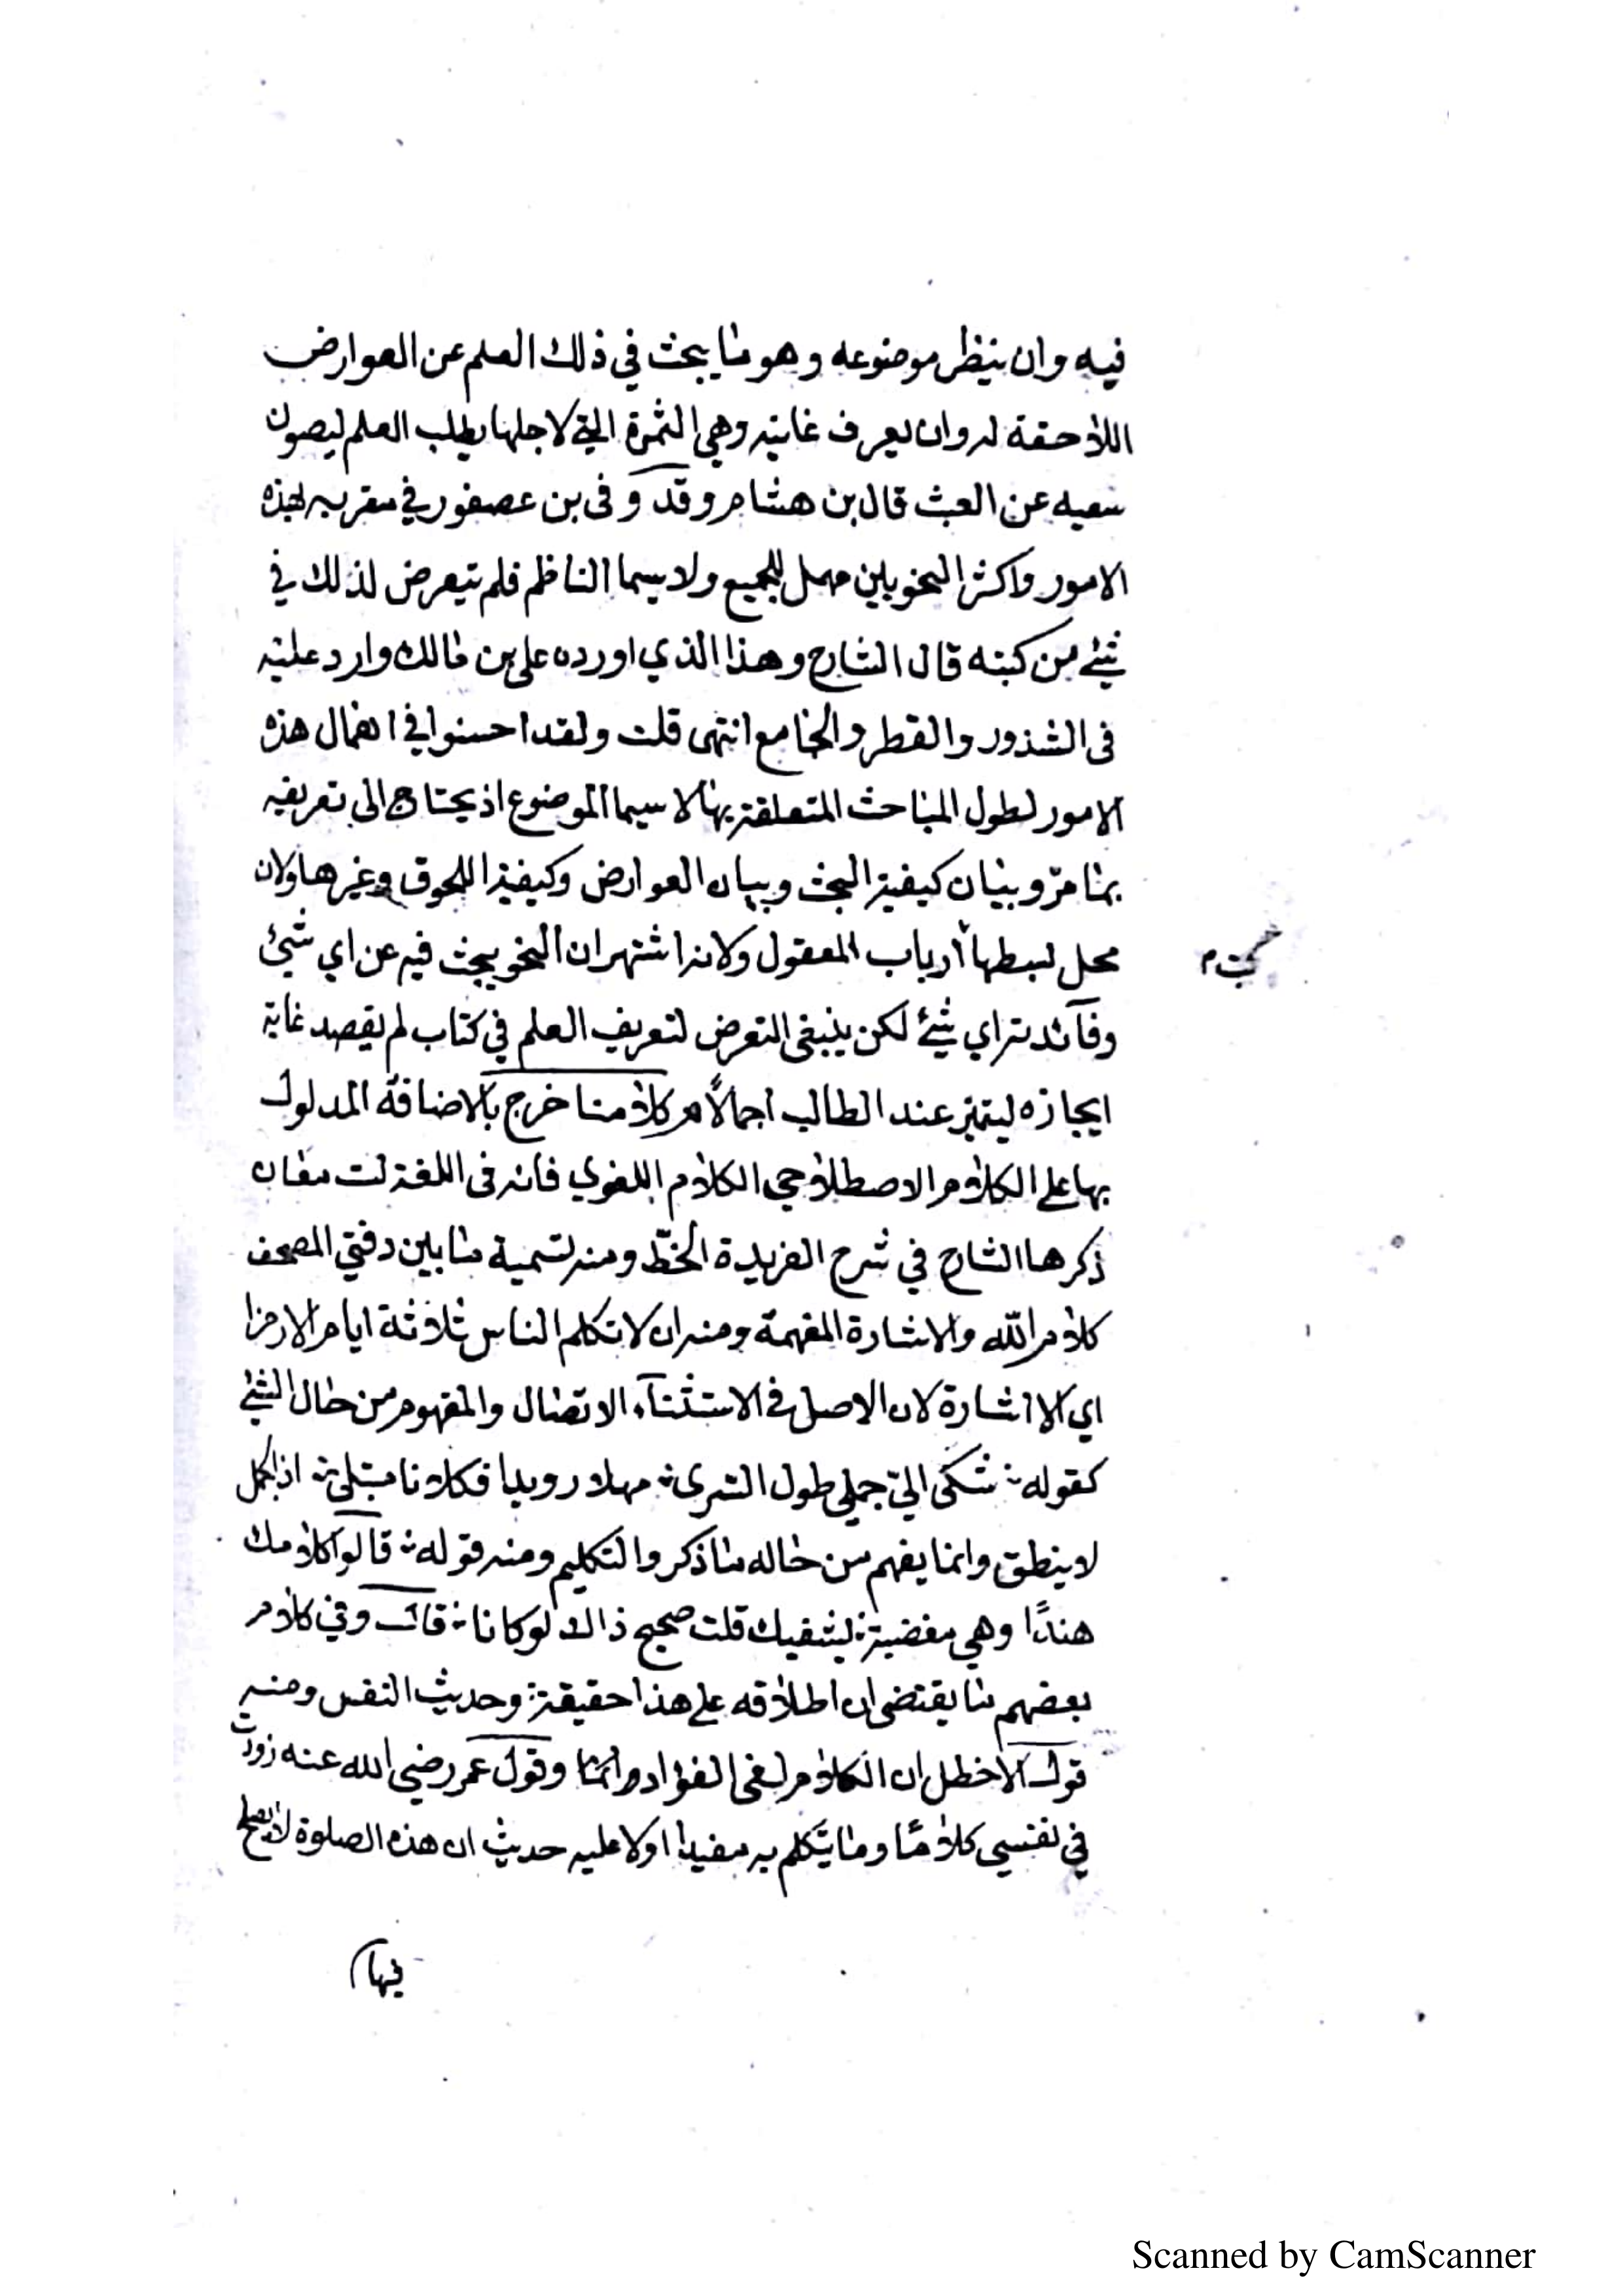 فيه وان ينظر موضوعه وهو ما يبحث في ذلك العلم عن العوارض
اللاحقة له وان يعرف غايته وهي الثمرة التي لاجلها يطلب العلم ليصون
سعيه عن العبث قال بن هشام وقد وفى بن عصفور في مقربه بهذه
الامور واكثر النحويين مهمل للجميع ولا سيما الناظم فلم يتعرض لذلك في
شيئ من كتبه قال الشارح وهذا الذي اورده على بن مالك وارد عليه
في الشذور والقطر والجامع انتهى قلت ولقد احسنوا في اهمال هذه
الامور لطول المباحث المتعلقة بها لا سيما الموضوع اذ يحتاج الى تعريفه
بما مرّ وبيان كيفية البحث وبيان العوارض وكيفية اللحوق وغيرها ولان
محل لبسطها أرباب المعقول ولانه اشتهر ان النحو يبحث فيه عن اي شيئ
كتب م
وفآئدته اي شيئ لكن ينبغي التعرض لتعريف العلم في كتاب لم يقصد غاية
ايجازه ليتميز عند الطالب اجمالاً م كلامنا خرج بالاضافة المدلول
بها على الكلام الاصطلاحي الكلام اللغوي فانه في اللغة لست معان
ذكرها الشارح في شرح الفريدة الخطّ ومنه تسمية ما بين دفتي المصحف
كلام الله والاشارة المفهمة ومنه ان لا تكلم الناس ثلاثة ايام الا رمزا
اي الا اشارة لان الاصل في الاستثنآء الاتصال والمفهوم من حال الشيئ
كقوله ؛ شكى اليّ جملي طول السرى ؛ مهلا رويدا فكلانا مبتلى ؛ اذ الجمل
لا ينطق وانما يفهم من حاله ما ذكر والتكليم ومنه قوله ؛ قالوا كلامك
هندًا وهي مغضبة ؛ يشفيك قلت صحيح ذاك لو كانا ؛ قال وفي كلام
بعضهم ما يقتضي ان اطلاقه على هذا حقيقة ؛ وحديث النفس ومنه
قول الاخطل ان الكلام لفي الفؤاد وانما وقول عمر رضي الله عنه زورت
في نفسي كلامًا وما يتكلم به مفيدا اولا عليه حديث ان هذه الصلوة لا يصلح
فيها
Scanned by CamScanner